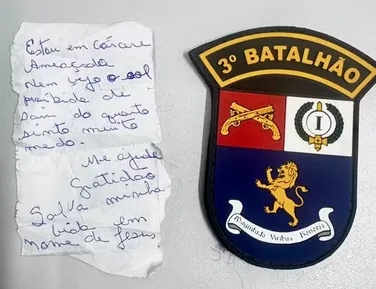 Estou em cárcere
Ameaçada
Nem vejo o sol
proibida de
sair do quarto
sinto muito
medo.
Me ajude
Gatidão
Salva minha
vida em
nome de Jesus
3º BATALHÃO
I